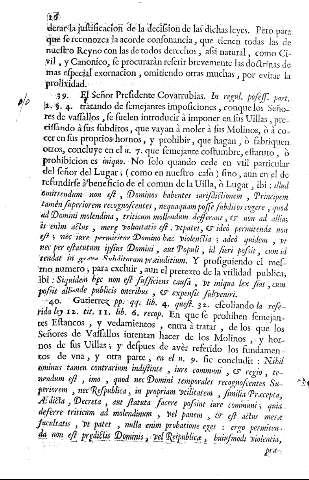 26
derar la justificacion de la decision de las dichas leyes. Pero para
que se reconozca la acorde consonancia, que tienen todas las de
nuestro Reyno con las de todos derechos, assi natural, como Ci-
vil, y Canonico, se procuraràn referir brevemente las doctrinas de
mas especial exornacion, omitiendo otras muchas, por evitar la
prolixidad.
39. El Señor Presidente Covarrubias. In regul. possess. part.
2. §. 4. tratando de semejantes imposiciones, conque los Seño-
res de vassallos, se suelen introducir à imponer en sus Uillas, pre-
cissando à sus subditos, que vayan à moler à sus Molinos, ò à co-
cer en sus proprios hornos, y prohibir, que hagan, ò fabriquen
otros, concluye en el n. 7. que semejante costumbre, estatuto, ò
prohibicion es iniqua. No solo quando cede en vtil particular
del señor del Lugar; (como en nuestro caso) sino, aun en el de
refundirse à beneficio de el comun de la Uilla, ò Lugar, ibi: illud
omittendum non est, Dominos habentes iurisdictionem, Principem
tamèn superiorem recognoscentes, nequaquam posse subditos cogere, quod
ad Domini molendina, triticum mollendum defferant, & non ad alia;
is enim actus, meræ voluntatis est, vt patet, & ideò permittenda non
est; nec iure permittitur Domino hæc violentia; adeò quidem, vt
nec per estatutum ipsius Domini, aut Populi, id fieri possit, cum id
tendat in grave Subditorum præiuditium. Y prosiguiendo el mes-
mo numero, para excluir, aun el pretexto de la vtilidad publica,
ibi: Siquidem hæc non est sufficiens causa, vt iniqua lex fiat, cum
possit aliundè publicis oneribus, & expensis subveniri.
40. Gutierrez pp. qq. lib. 4. quæst. 32. escoliando la refe-
rida ley 12. tit. 11. lib. 6. recop. En que se prohiben semejan-
tes Estancos, y vedamientos, entra à tratar, de los que los
Señores de Vassallos intentan hacer de los Molinos, y hor-
nos de sus Uillas; y despues de avèr referido los fundamen-
tos de vna, y otra parte, en el n. 9. sic concludit: Nihil
ominus tamen contrarium indistinte, iure communi, & regio, te-
nendum est, imo, quod nec Domini temporales recognoscentes Su-
periorem, nec Respublica, in propriam vtilitatem, similia Præcepta,
Ædicta, Decreta, aut statuta facere possint iure communi; quia
deferre triticum ad molendinum, vel panem, & est actus meræ
facultatis, vt patet, nulla enim probatione eget: ergo permitten-
da non est prædictis Dominis, vel Reipublicæ, huiusmodi violentia,
præ-